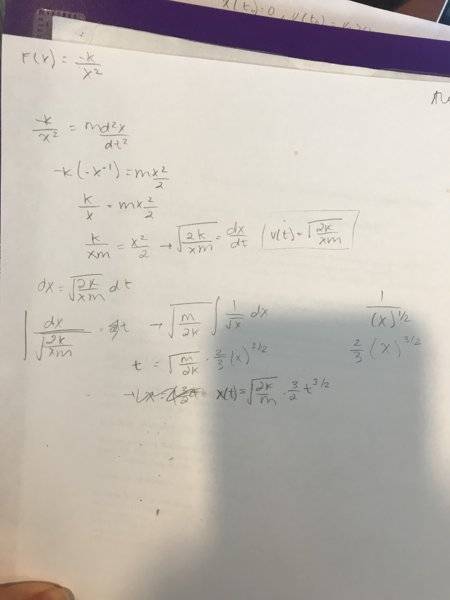 x(t₀) = 0, v(t₀) =
F(x) = -k/x²
-k/x² = m d²x/dt²
-k(-x⁻¹) = m ẋ²/2
k/x = m ẋ²/2
k/xm = ẋ²/2 → √(2k/xm) = dx/dt (v(t) = √(2k/xm)
dx = √(2k/xm) dt
∫ dx/√(2k/xm) = dt → √(m/2k) ∫ 1/√x dx
1/(x)^1/2
t = √(m/2k) · 2/3 (x)^3/2
2/3 (x)^3/2
x(t) = √(2k/m) · 3/2 t^3/2